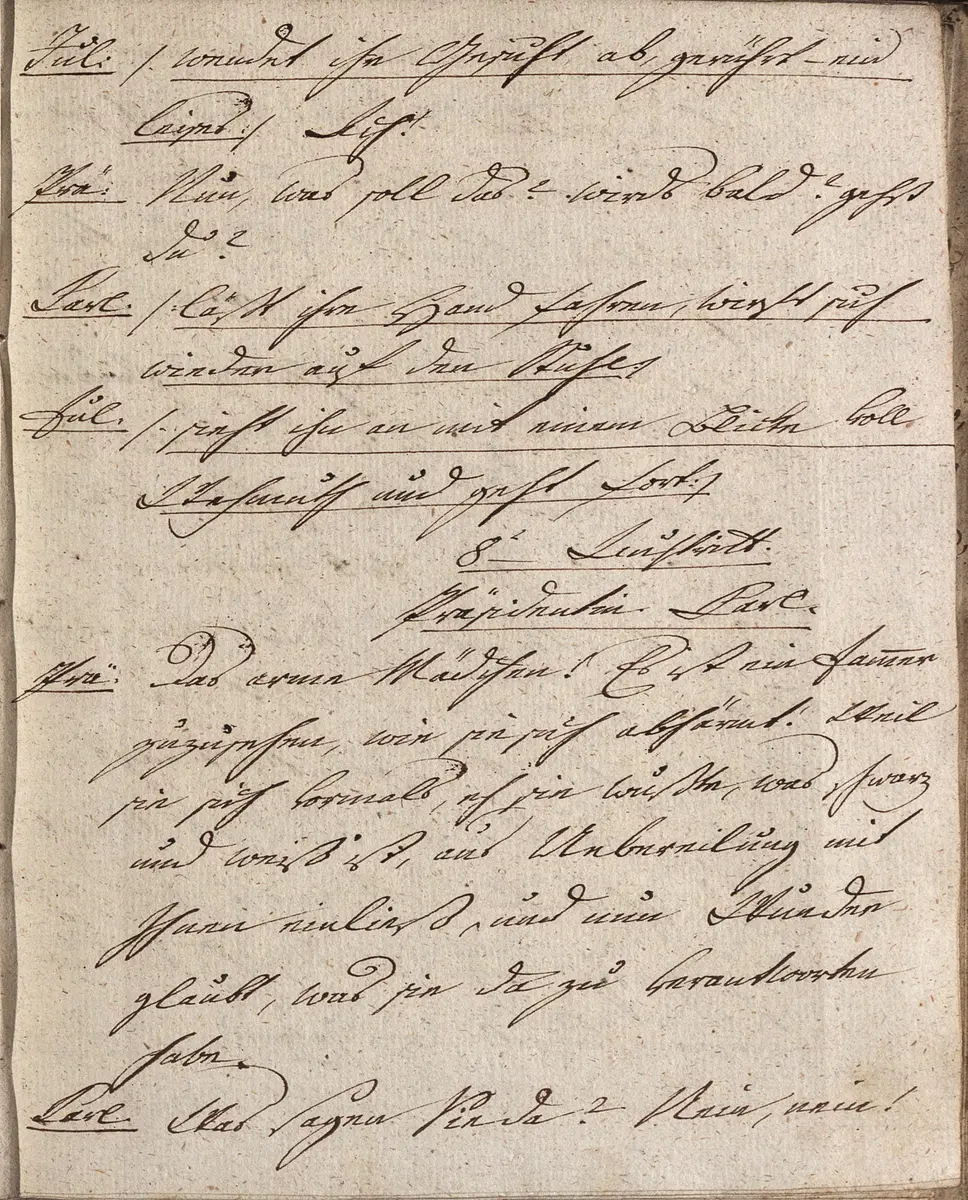 Jul: /: wendet ihr Gesicht ab, gerührt – ein
leises :/ Ach!
Prä: Nun, was soll das? wirds bald? gehst
du?
Carl. /: läßt ihre Hand fahren, wirft sich
wieder auf den Stuhl :/
Jul. /: sieht ihn an mit einem Blicke voll
Wehmuth und geht fort :/
8t Auftritt.
Präsidentin. Carl.
Prä: Das arme Mädchen! Es ist ein Jam̅er
zuzusehen, wie sie sich abhärmt! Weil
sie sich vormals, eh sie wußte, was schwarz
und weiß ist, aus Uebereilung mit
Ihnen einließ, und nun Wunder
glaubt, was sie da zu verantworten
habe.
Carl. Was sagen Sie da? Nein, nein!